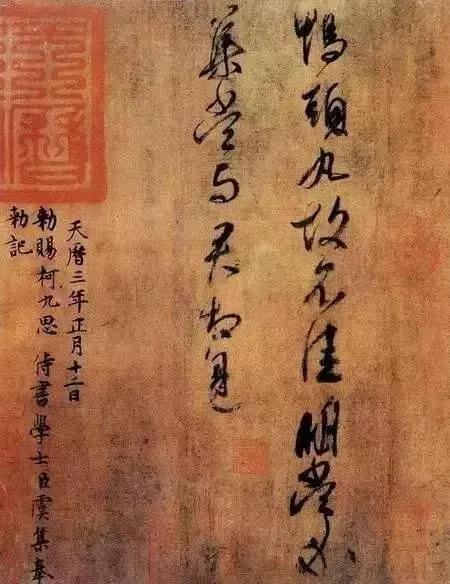 鴨頭丸故不佳明當必
集當与君相見
天曆三年正月十二日
勅賜柯九思 侍書學士臣虞集奉
勅記